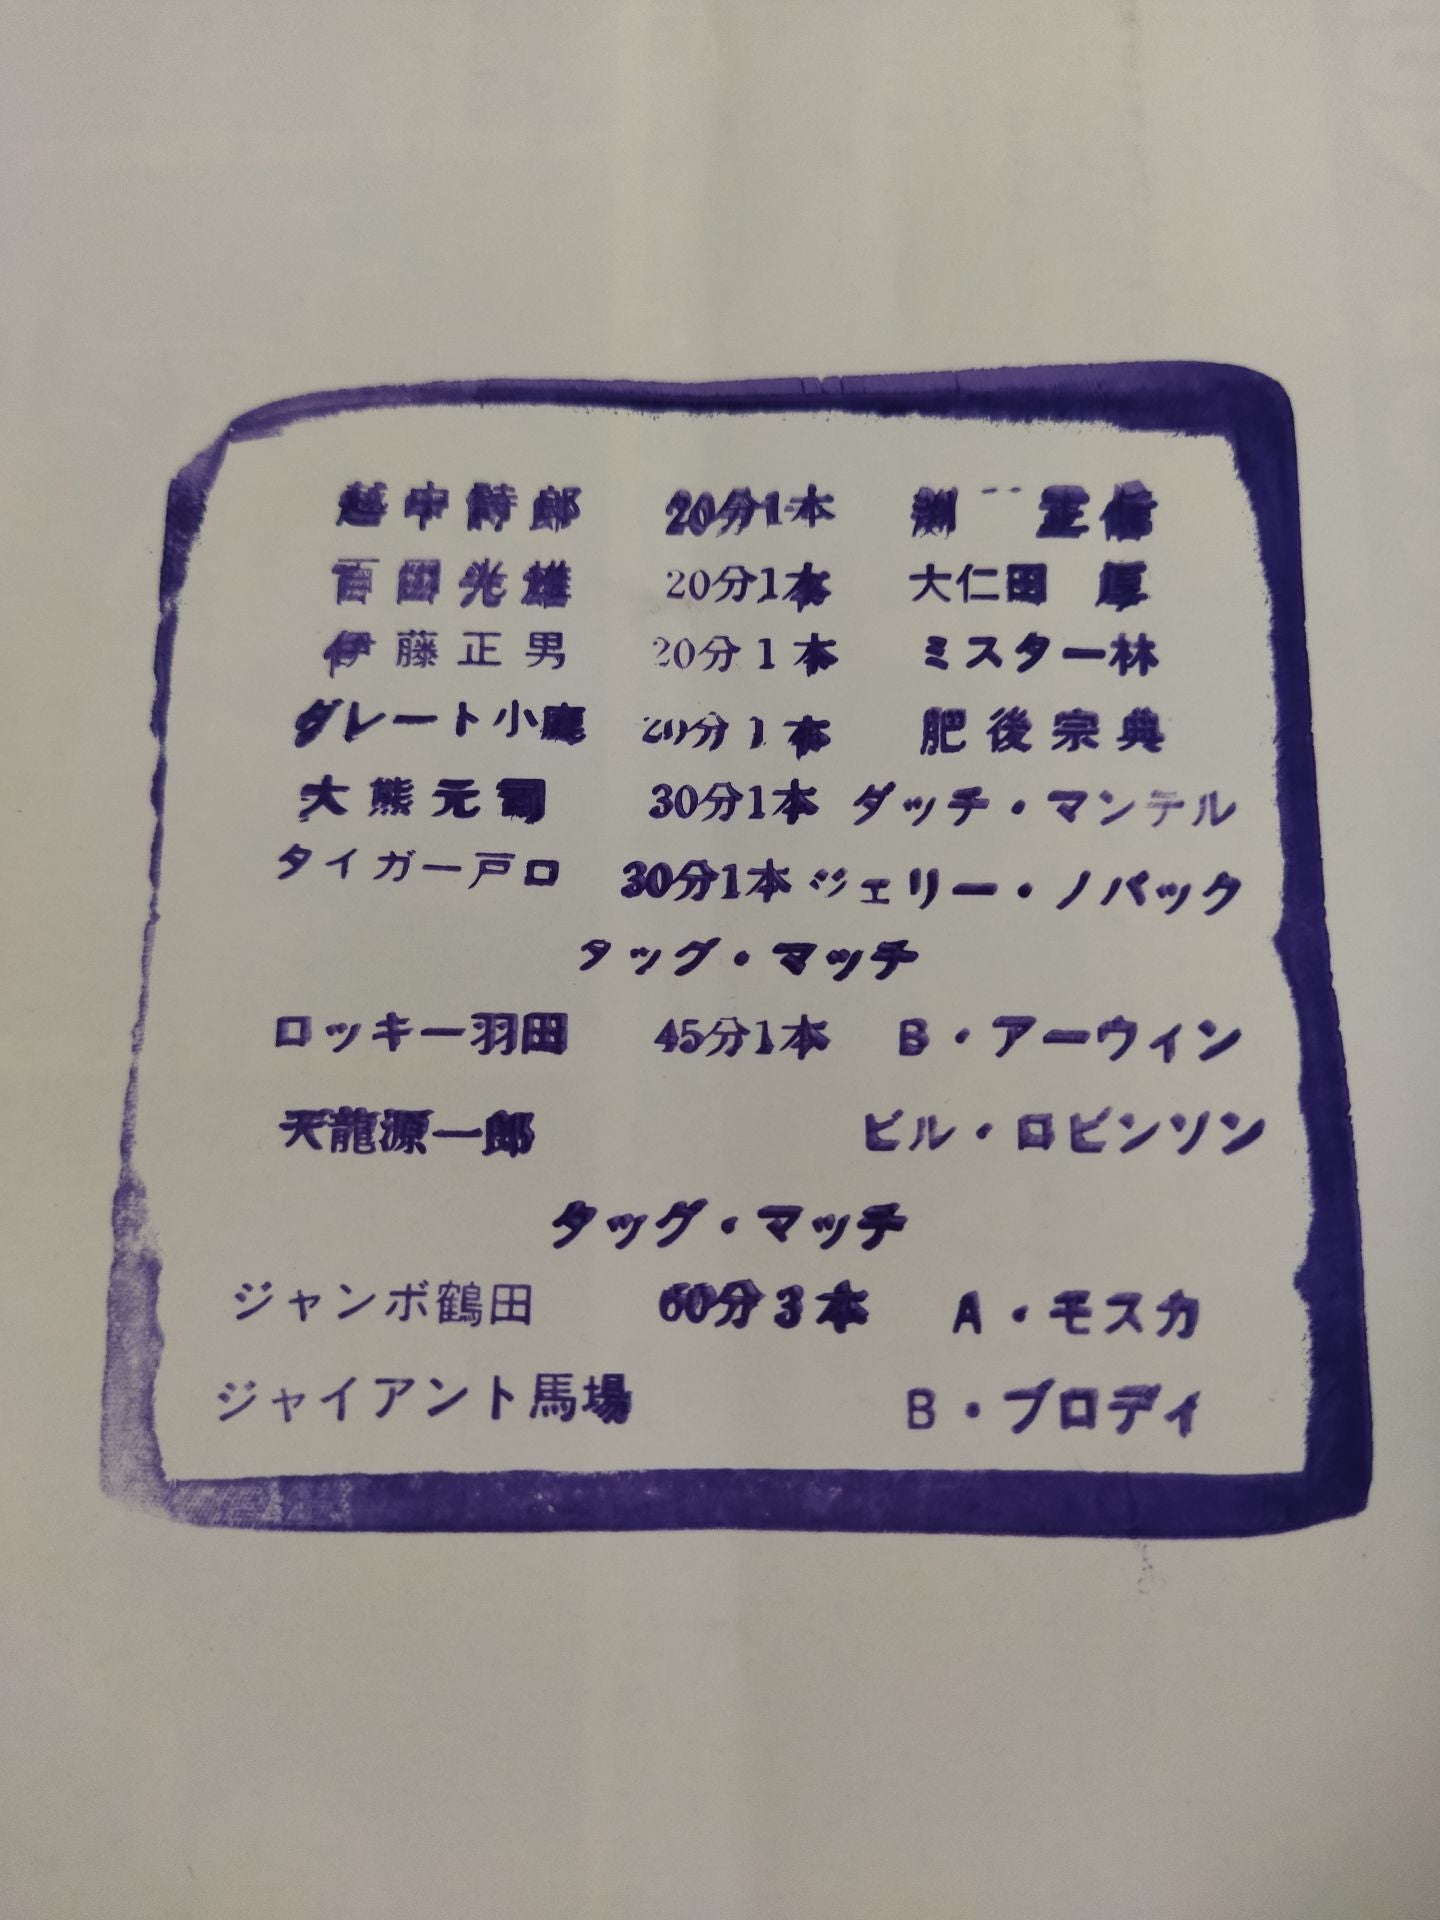 越中詩郎 20分1本 渕 正信
百田光雄 20分1本 大仁田 厚
伊藤正男 20分1本 ミスター林
グレート小鹿 20分1本 肥後宗典
大熊元司 30分1本 ダッチ・マンテル
タイガー戸口 30分1本 ジェリー・ノバック
タッグ・マッチ
ロッキー羽田 45分1本 B・アーウィン
天龍源一郎 ビル・ロビンソン
タッグ・マッチ
ジャンボ鶴田 60分3本 A・モスカ
ジャイアント馬場 B・ブロディ